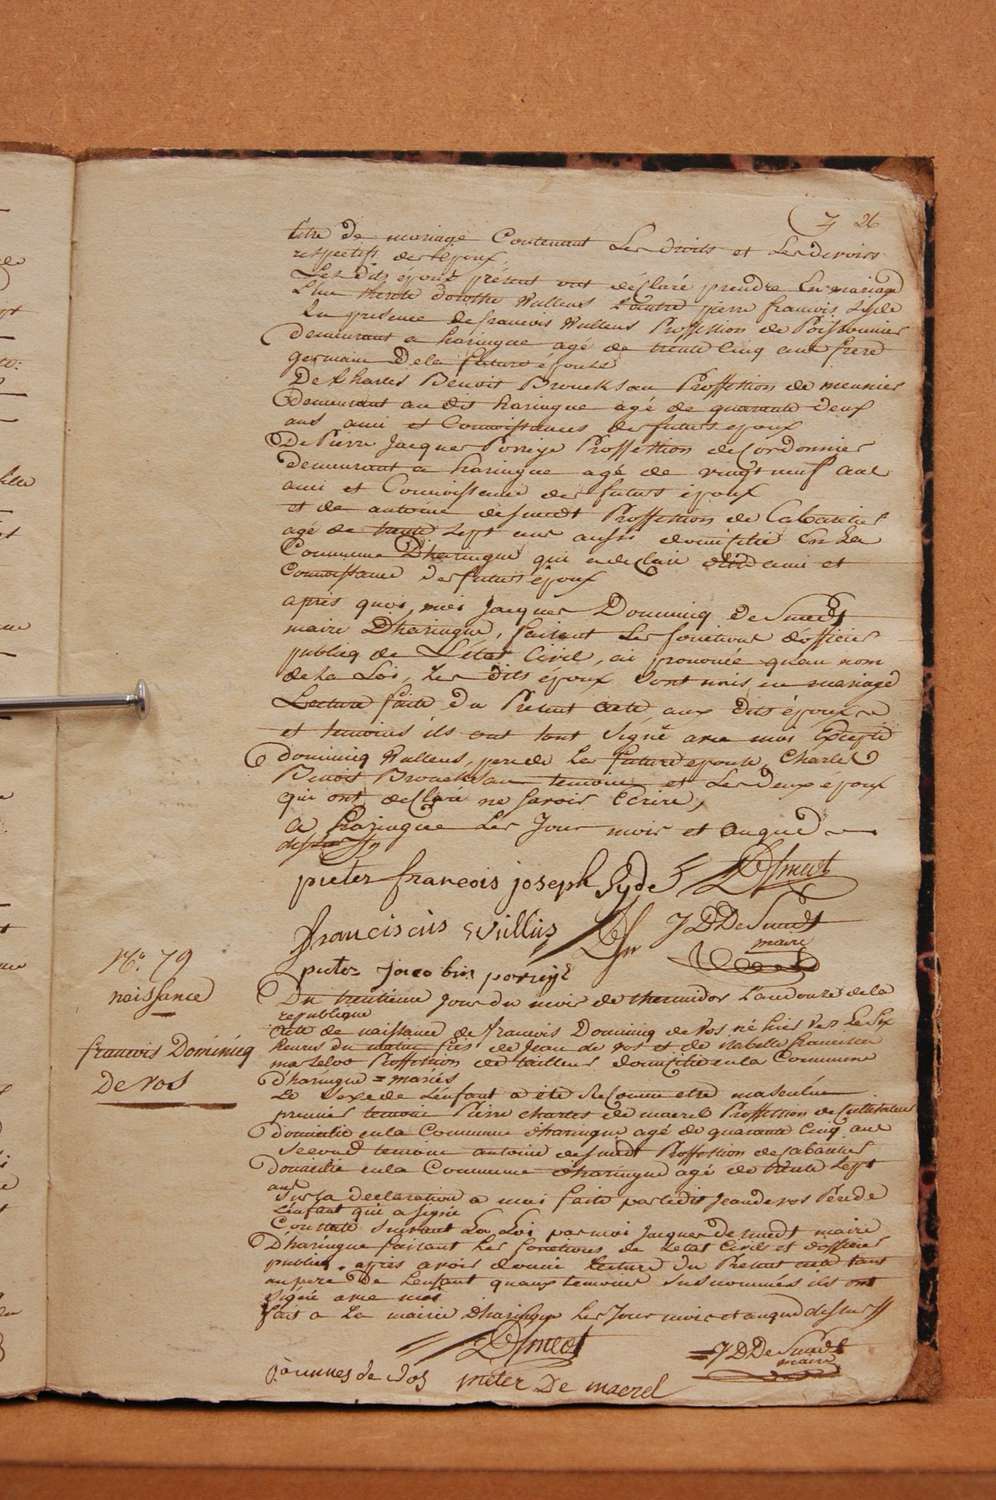 7 26
titre de mariage Contenant Les droits et Les devoirs
respectifs des époux,
Les dits époux présent ont déclaré prendre En mariage
L'un dorothe Wullens L'autre pierre francois Syde
En presence de francois Wullens Proffession de Poissonnier
demeurant a haringue agé de trente Cinq ans frere
germain de la future épouse
De Charles Benoit Brouckxsau Proffession de meunier
demeurant au dit haringue agé de quarante deux
ans ami et Connoissances des futurs epoux
De Pierre Jacques Porreye Proffession de Cordonnier
demeurant a haringue agé de vingt neuf ans
ami et Connoissance des futurs époux
et de antoine desmedt Proffession de Cabartier
agé de trente sept ans aussi domicilié En La
Commune D'haringue qui a declaré etre ami et
Connoissance des futurs époux
après quoi, moi Jacques Dominicq De Smedt
maire D'haringue, faisant Les fonctions d'officier
publicq de L'état Civil, ai prononcé qu'au nom
de La Loi, Les dits époux sont unis en mariage
Lecture faite du Present acte, aux dits époux
et temoins ils ont tout signé avec moi Excepté
dominicq Wullens, pere de La future epouse, Charles
Benoit Brouckxsau temoin et Les deux époux
qui ont declaré ne savoir Ecrire,
a haringue Les Jour mois et anque
dessus
pieter francois joseph Syde DSmedt
franciscus Wullus JDDeSmedt
maire
pieter Jacobus porreye
No. 79
naissance
francois Dominicq
De vos
Du trentieme Jour du mois de thermidor L'an douze de la
republique
Acte de naissance de francois Dominicq de Vos né hier vers Les Six
heures du matin fils de Jean de vos et de Isabelle francoise
Proffession de tailleur domicilié en la Commune
d'haringue = mariés
Le Sexe de L'enfant a été reconnu etre masculin
premier temoin Pierre charles de maerel Proffession de Cultivateur
domicilié en la Commune d'haringue agé de quarante Cinq ans
Second temoin antoine desmedt Proffession de Cabartier
domicilié en la Commune d'haringue agé de trente sept
ans
Sur la declaration a moi faite par ledit Jean de vos Pere de
L'enfant qui a signé
Constaté suivant La Loi par moi Jacques de smedt maire
D'haringue faisant Les fonctions de L'etat Civil et d'officier
publicq. après avoir donné Lecture du Present acte tant
au pere de L'enfant qu'aux temoins susnommés ils ont
signé avec moi
fait a La mairie d'haringue Les Jour mois et anque dessus
DSmedt JDDeSmedt
maire
Joannes de Vos pieter De maerel